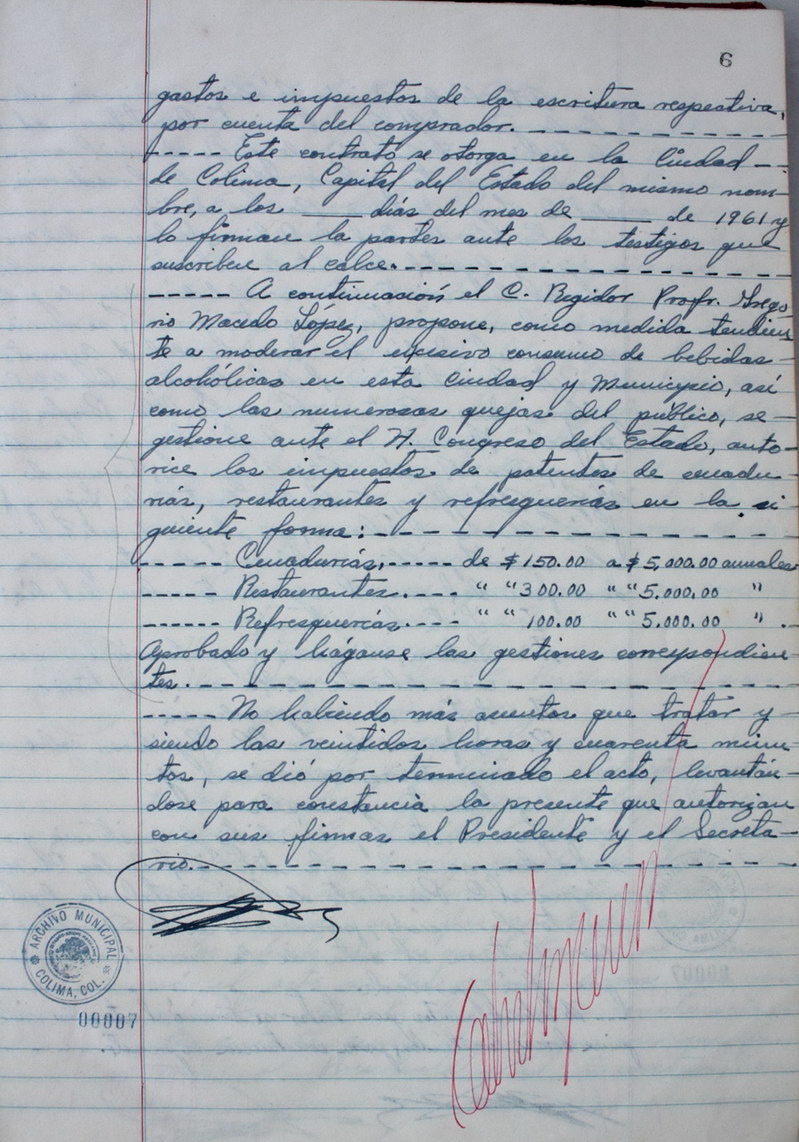 6
gastos e impuestos de la escritura respectiva,
por cuenta del comprador. - - - - - - - - - -
- - - - - Este contrato se otorga en la Ciudad -
de Colima, Capital del Estado del mismo nom-
bre, a los ____ días del mes de ____ de 1961 y
lo firman la partes ante los testigos que
suscriben al calce. - - - - - - - - - - - - -
- - - - - A continuación el C. Regidor Profr. Grego
rio Macedo López, propone, como medida tendien
te a moderar el excesivo consumo de bebidas
alcohólicas en esta Ciudad y Municipio, así
como las numerosas quejas del público, se
gestione ante el H. Congreso del Estado, auto-
rice los impuestos de patentes de cenadu
rías, restaurantes y refresquerías en la si
guiente forma: - - - - - - - - - - - - -
- - - - - Cenadurías, - - - - - de $150.00 a $5,000.00 anuales
- - - - - Restaurantes. - - - - " "300.00 " "5.000.00 "
- - - - - Refresquerías. - - - - " " 100.00 " "5.000.00 " .
Aprobado y hágause las gestiones correspondien
tes. - - - - - - - - - - - - - - - - - - -
- - - - - No habiendo más asuntos que tratar y
siendo las veintidos horas y cuarenta minu
tos, se dió por terminado el acto, levantán-
dose para constancia la presente que autorizan
con sus firmas el Presidente y el Secreta-
rio. - - - - - - - - - - - - - - - - - - -
ARCHIVO MUNICIPAL
COLIMA, COL.
00007